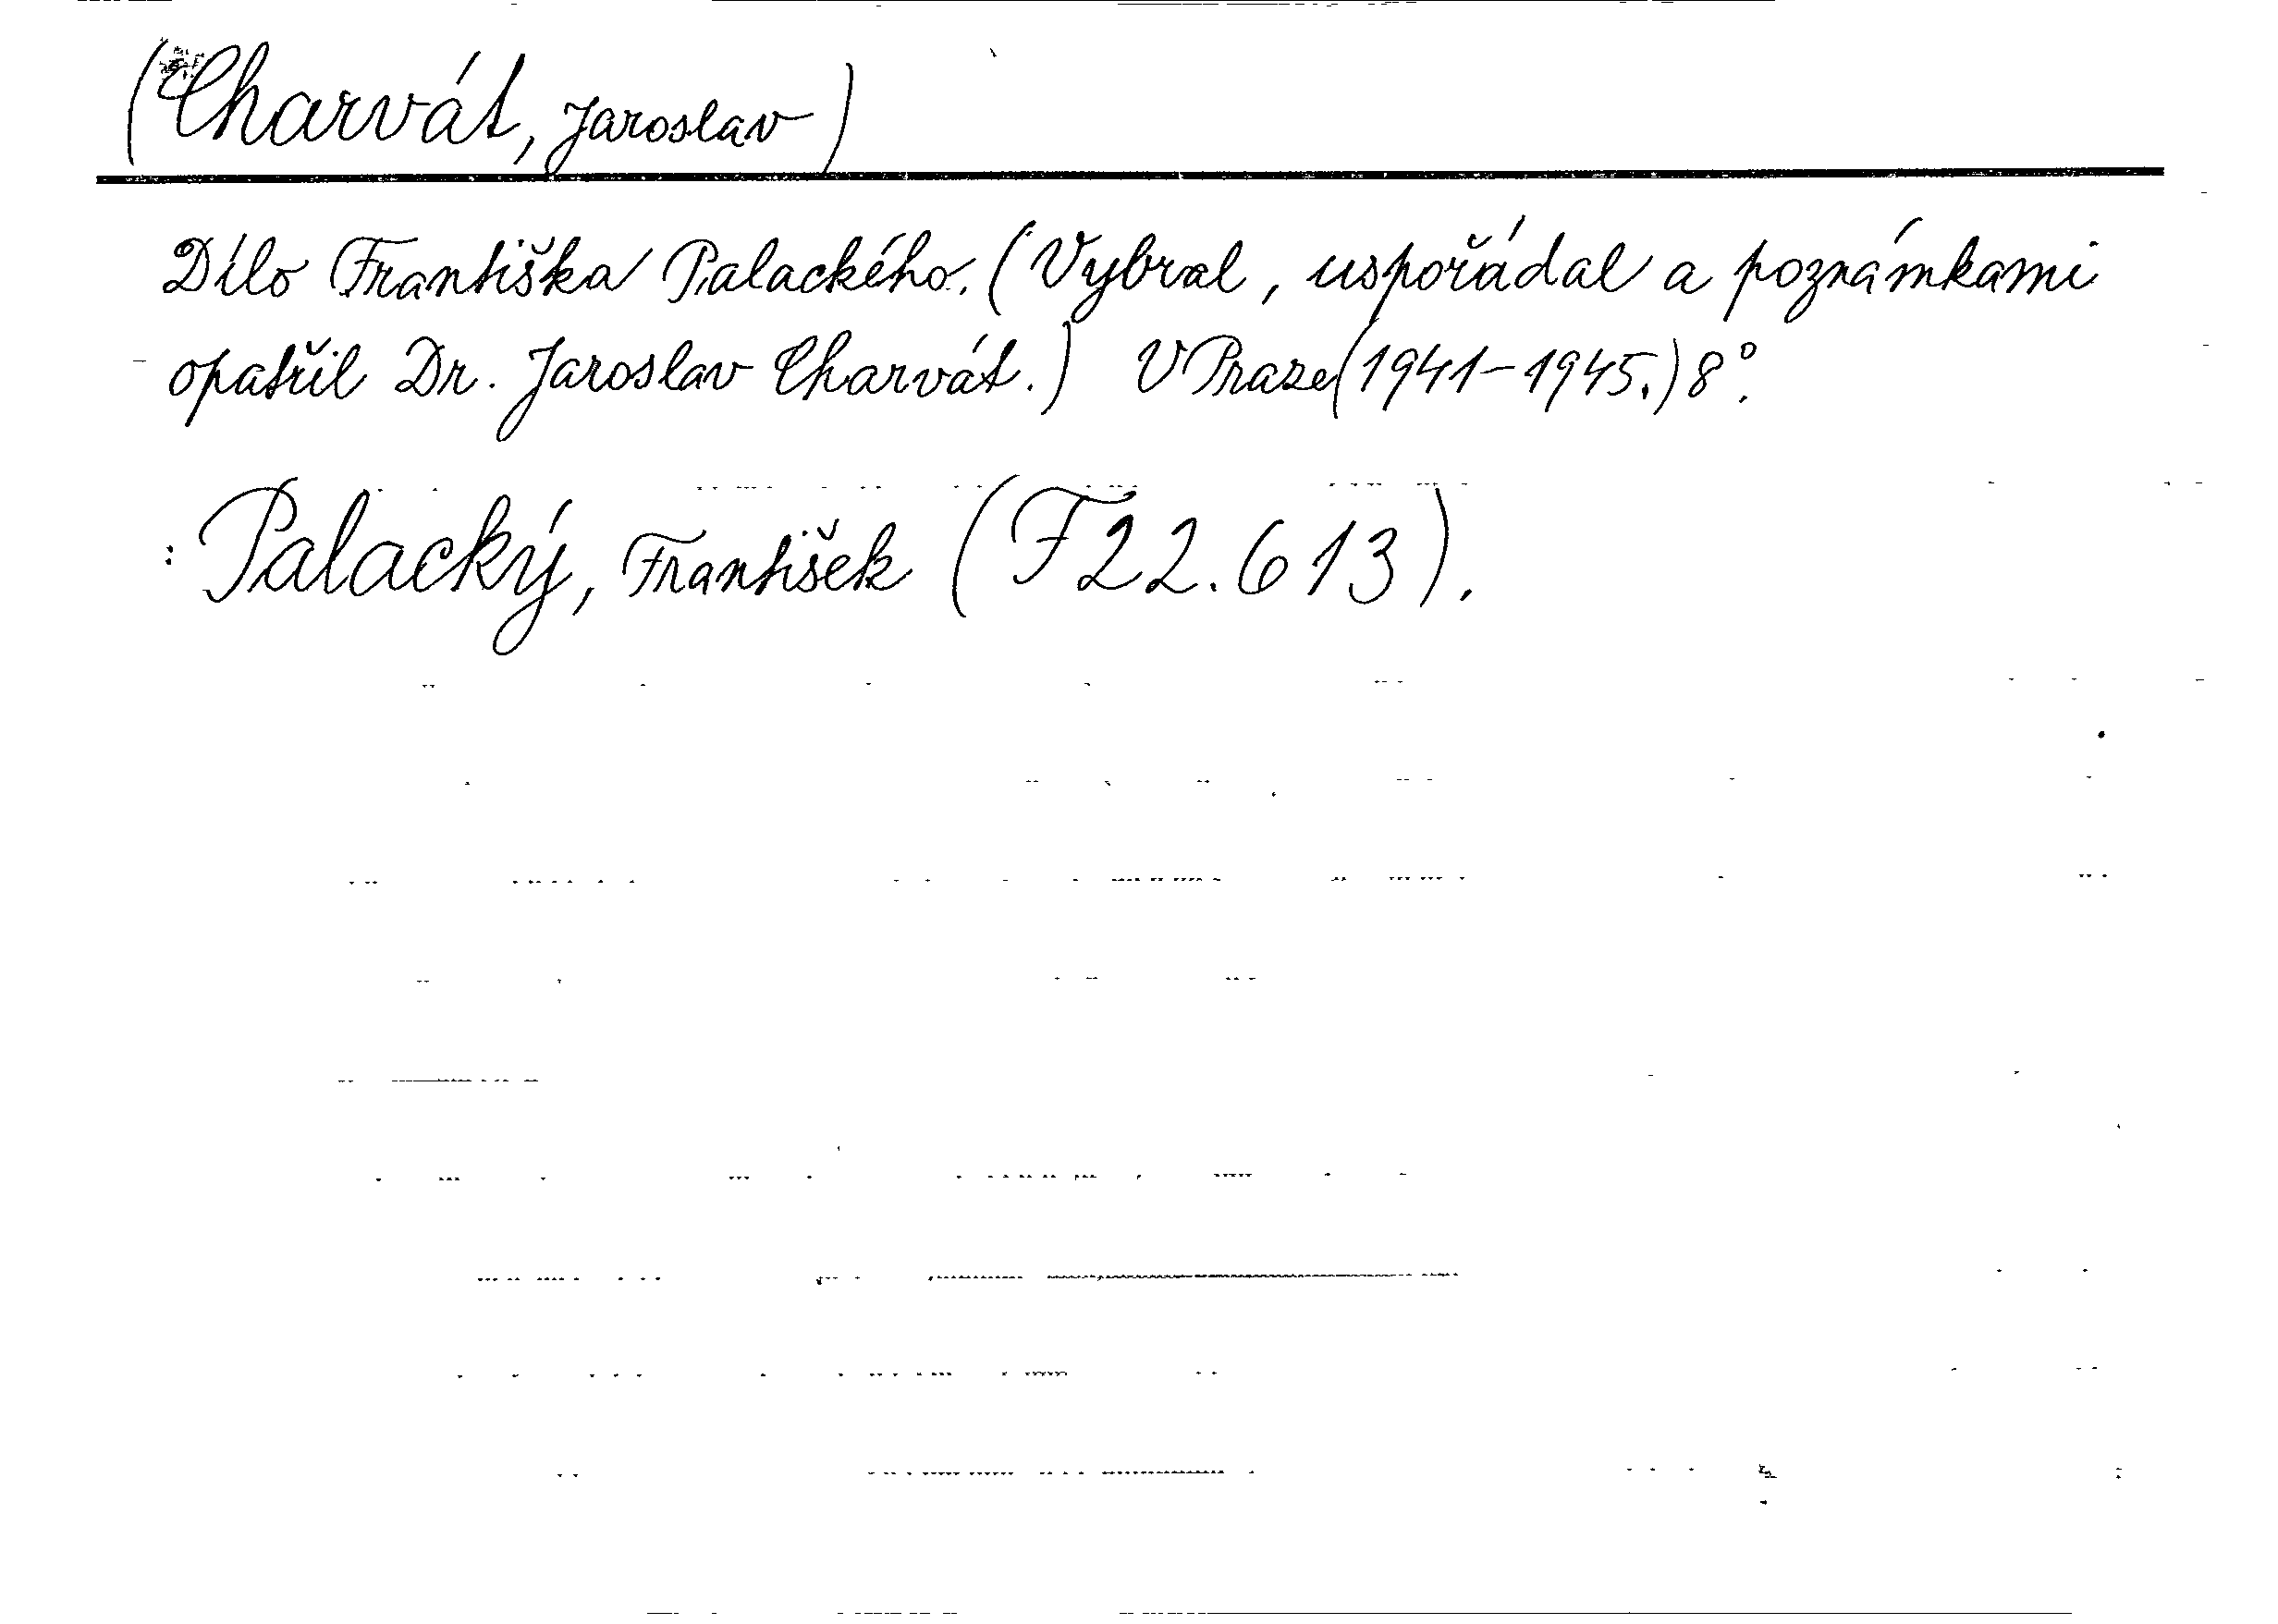 (Charvát, Jaroslav)
Dílo Františka Palackého. (Vybral, uspořádal a poznámkami
opatřil Dr. Jaroslav Charvát.) V Praze (1941-1945.) 8°.
: Palacký, František (F 22.613).